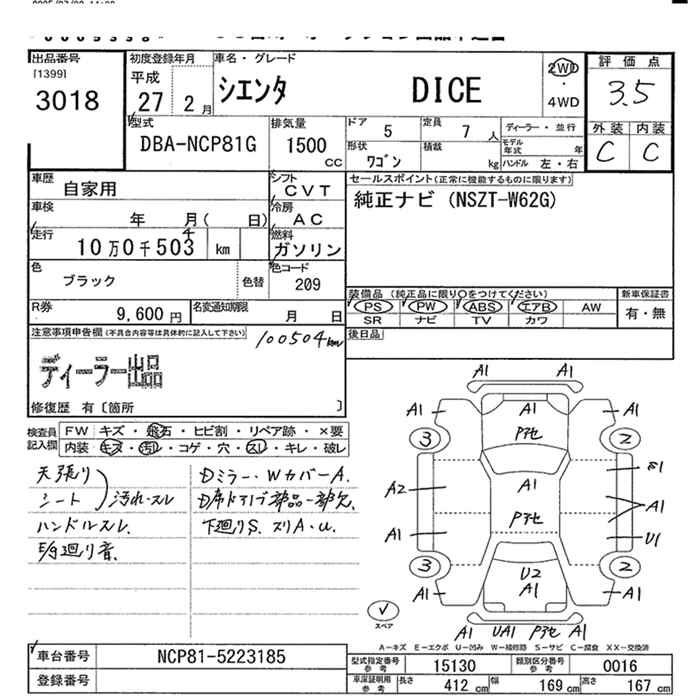 出品番号
[1399]
3018
初度登録年月
平成
27年 2月
車名・グレード
シエンタ DICE
2WD
・
4WD
評価点
3.5
外装 内装
C C
型式
DBA-NCP81G
排気量
1500
cc
ドア 5
定員 7 人
形状 ワゴン
積載 kg
ディーラー・並行
モデル年式 年
ハンドル 左・右
車歴 自家用
シフト CVT
車検 年 月( 日)
冷房 AC
走行 10万0千503 km
4
燃料 ガソリン
色 ブラック 色替
色コード 209
R券 9,600 円
名変通知期限 月 日
セールスポイント(正常に機能するものに限ります)
純正ナビ (NSZT-W62G)
装備品 (純正品に限り〇をつけてください)
PS PW ABS エアB AW
SR ナビ TV カワ
新車保証書
有・無
後日品
注意事項申告欄(不具合内容等は具体的に記入して下さい)
100504km
ディーラー出品
修復歴 有〔箇所 〕
検査員記入欄
FW キズ・飛石・ヒビ割・リペア跡・×要
内装 キズ・汚レ・コゲ・穴・スレ・キレ・破レ
天張り
シート 汚れ・スレ
ハンドルスレ
Dミラー・WカバーA.
下廻りS. スリA・U.
A1 A1
A1 A1 A1
3 2
A2 A1 A1
A1 U1
3 2
U2
A1 A1 A1
A1 UA1 A1
スペア
A-キズ E-エクボ U-凹み W-補修跡 S-サビ C-腐食 XX-交換済
車台番号 NCP81-5223185
登録番号
型式指定番号 参考 15130
類別区分番号 参考 0016
車庫証明用 参考
長さ 412 cm 幅 169 cm 高さ 167 cm